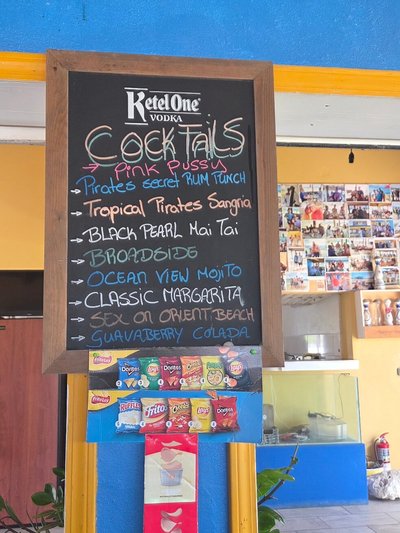 Ketel One
VODKA
COCKTAILS
→ Pink Pussy
→ Pirates secret RUM PUNCH
→ Tropical Pirates Sangria
→ BLACK PEARL Mai Tai
→ BROADSIDE
→ OCEAN VIEW MOJITO
→ CLASSIC MARGARITA
→ SEX ON ORIENT BEACH
→ GUAVABERRY COLADA
FritoLay
Doritos
Doritos
Lay's
FritoLay
RUFFLES
Fritos
Lay's
Doritos